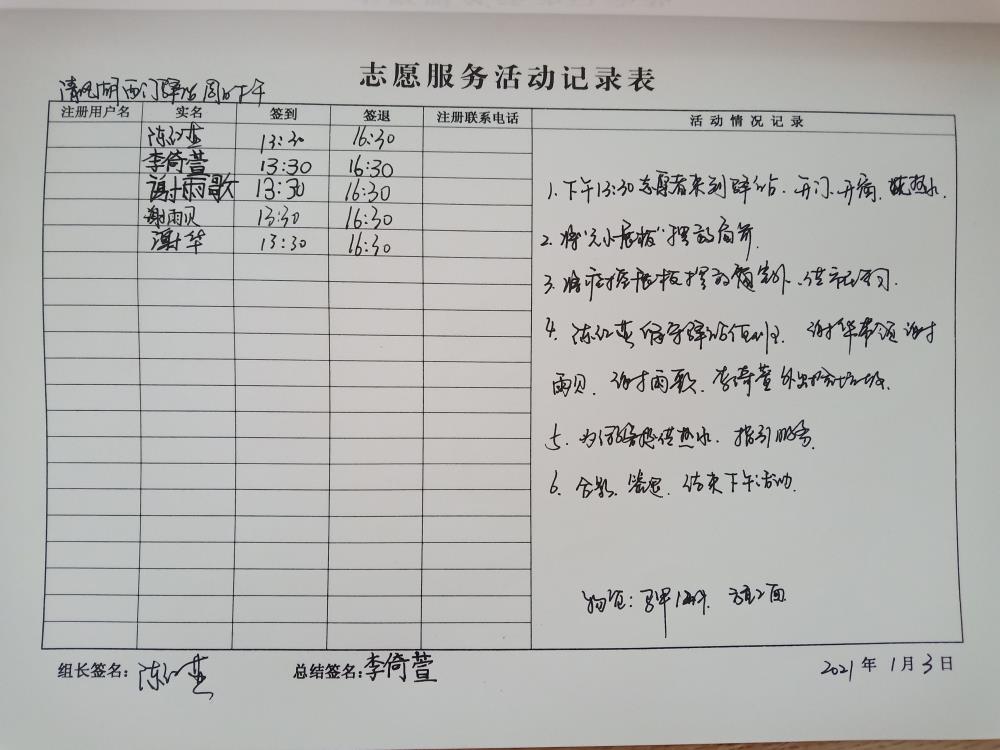 志愿服务活动记录表
清风湖西门驿站周日下午
注册用户名 实名 签到 签退 注册联系电话 活动情况记录
陈红燕 13:30 16:30
李倚萱 13:30 16:30
谢雨歌 13:30 16:30
谢雨贝 13:30 16:30
谢华 13:30 16:30
1. 下午13:30志愿者来到驿站.开门.开窗.烧热水.
2. 将"元小展板"摆放窗前.
3. 将疫控展板摆放窗外.供市民学习.
4. 陈红燕留守驿站值班. 谢华带领谢
雨贝.谢雨歌.李倚萱外出捡垃圾.
5. 为游客提供热水.指引服务.
6. 合影.签退.结束下午活动.
物资:马甲 件 2面
组长签名:陈红燕 总结签名:李倚萱 2021年1月3日